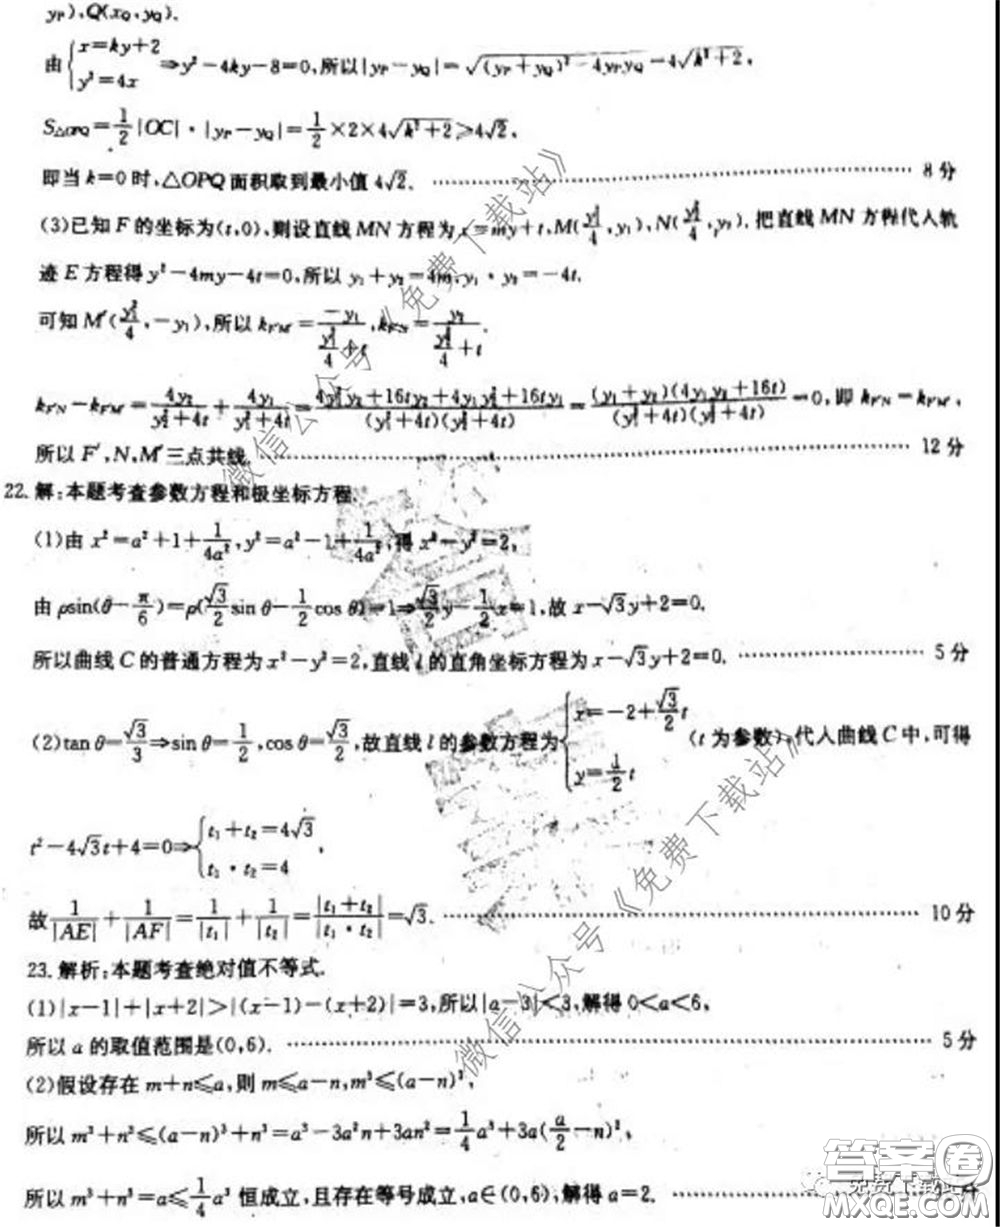 yP),Q(xQ,yQ).
由{x=ky+2 y²=4x ⇒y²-4ky-8=0,所以|yP-yQ|=√((yP+yQ)²-4yPyQ)=4√(k²+2),
S△OPQ=1/2|OC|·|yP-yQ|=1/2×2×4√(k²+2)≥4√2,
即当k=0时,△OPQ面积取到最小值4√2. …… 8分
(3)已知F的坐标为(t,0),则设直线MN方程为x=my+t,M(y₁²/4,y₁),N(y₂²/4,y₂).把直线MN方程代入轨
迹E方程得y²-4my-4t=0,所以y₁+y₂=4m,y₁·y₂=-4t.
可知M′(y₁²/4,-y₁),所以kF′M′=-y₁/(y₁²/4+t),kF′N=y₂/(y₂²/4+t).
kF′N-kF′M′=4y₂/(y₂²+4t)+4y₁/(y₁²+4t)=(4y₁²y₂+16ty₂+4y₁y₂²+16ty₁)/((y₂²+4t)(y₁²+4t))=(y₁+y₂)(4y₁y₂+16t)/((y₂²+4t)(y₁²+4t))=0,即kF′N=kF′M′,
所以F′,N,M′三点共线. …… 12分
22.解:本题考查参数方程和极坐标方程.
(1)由x²=a²+1+1/(4a²),y²=a²-1+1/(4a²),得x²-y²=2,
由ρsin(θ-π/6)=ρ(√3/2 sin θ-1/2 cos θ)=1⇒√3/2 y-1/2 x=1,故x-√3y+2=0.
所以曲线C的普通方程为x²-y²=2,直线l的直角坐标方程为x-√3y+2=0. …… 5分
(2)tan θ=√3/3⇒sin θ=1/2,cos θ=√3/2,故直线l的参数方程为{x=-2+√3/2 t y=1/2 t (t为参数),代入曲线C中,可得
t²-4√3t+4=0⇒{t₁+t₂=4√3 t₁·t₂=4,
故1/|AE|+1/|AF|=1/|t₁|+1/|t₂|=|t₁+t₂|/|t₁·t₂|=√3. …… 10分
23.解析:本题考查绝对值不等式.
(1)|x-1|+|x+2|>|(x-1)-(x+2)|=3,所以|a-3|<3,解得0<a<6,
所以a的取值范围是(0,6). …… 5分
(2)假设存在m+n≤a,则m≤a-n,m³≤(a-n)³,
所以m³+n³≤(a-n)³+n³=a³-3a²n+3an²=1/4a³+3a(a/2-n)²,
所以m³+n³=a≤1/4a³恒成立,且存在等号成立,a∈(0,6),解得a=2. ……
微信公众号《免费下载站》
微信公众号《免费下载站》
免费下载站
答案卷
MXQE.COM